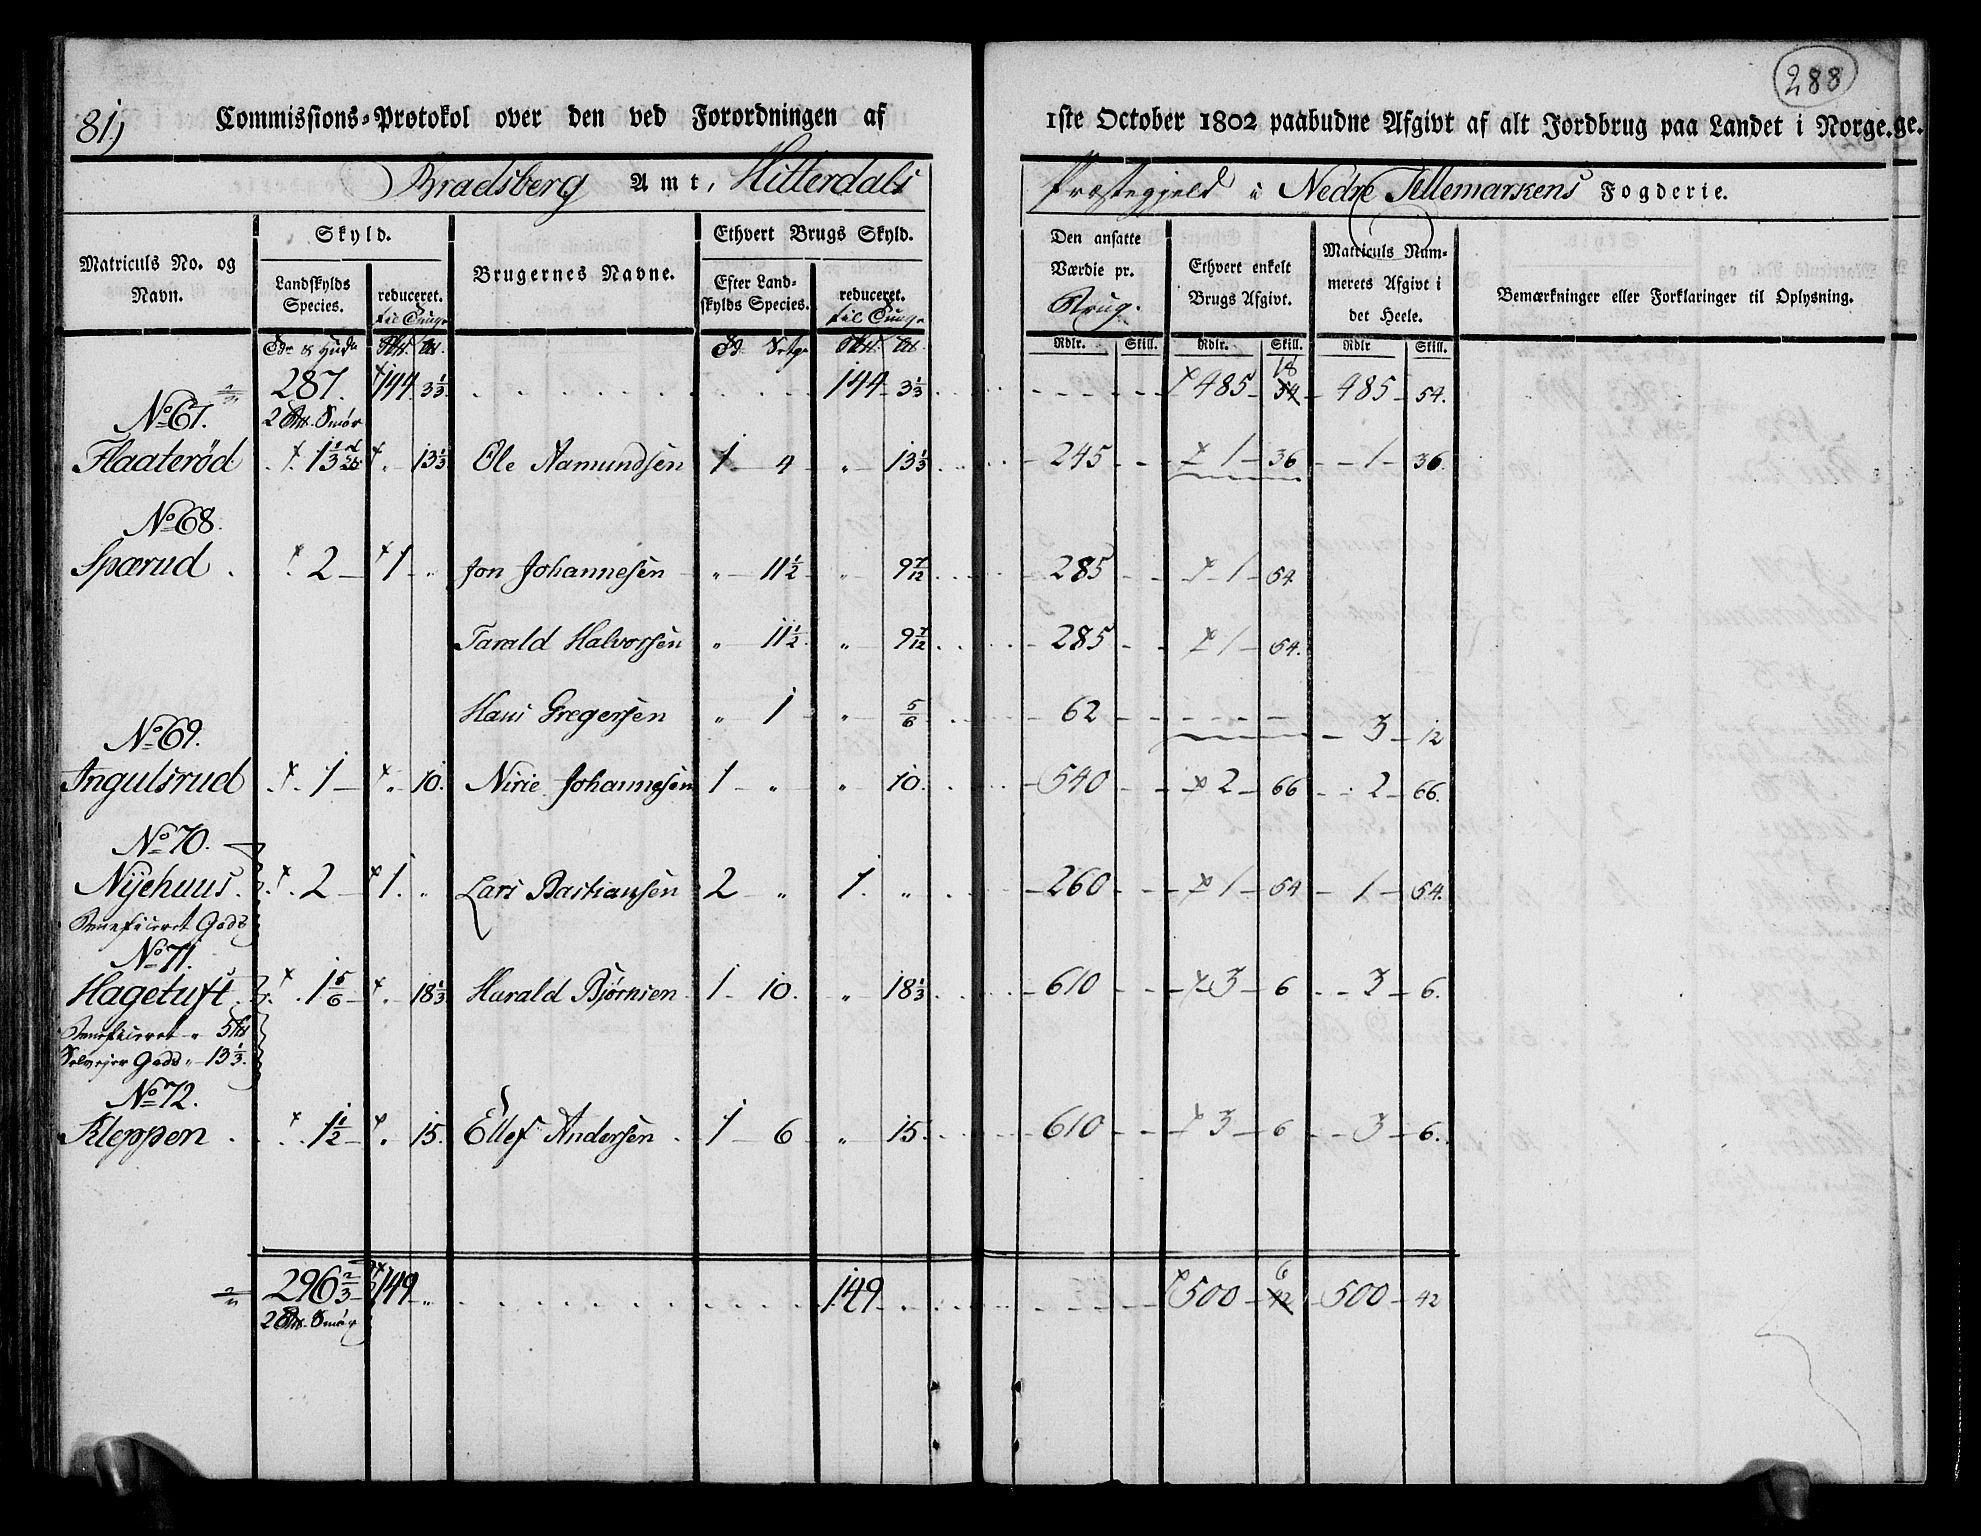 288
81)
Commissions-Protokol over den ved Forordningen af 1ste October 1802 paabudne Afgivt af alt Jordbrug paa Landet i Norge. ge.
Bradsberg Amt, Hitterdals Præstegjeld i Nedre Tellemarkens Fogderie.
Matriculs No. og Navn. Skyld. Brugernes Navne. Ethvert Brugs Skyld. Den ansatte Værdie pr. Brug. Ethvert enkelt Brugs Afgivt. Matriculs Nummerets Afgivt i det Heele. Bemærkninger eller Forklaringer til Oplysning.
Landskylds Species. reduceret. til Tunge Efter Landskylds Species. reduceret. til Tunge
Rdlr. Skill. Rdlr. Skill. Rdlr Skill.
287. 144 3 1/3 144 3 1/3 485 18 54 485 54.
2 Smør
No 67.
Flaaterød 1 1/3 13 1/3 Ole Aamundsen 1 4 " 13 1/3 245 1 36 1 36.
No 68.
Spærud 2 1 " Jon Johannesen " 11 1/2 " 9 7/12 285 1 54.
Tarald Halvorsen " 11 1/2 " 9 7/12 285 1 54.
Hans Gregersen " 1 " 5/6 62 3 12
No 69.
Ingulsrud 1 " 10. Nirie Johannesen 1 " " 10. 540 2 66 2 66.
No 70.
Nyehuus. 2 1. " Lars Bastiansen 2 " 1. " 260 1 54 1 54.
Beneficeret Gods
No 71.
Hagetuft 1 5/6 " 18 1/3 Harald Bjørnsen 1 10. " 18 1/3 610 3 6 3 6.
Beneficeret " 5
Selvejer Gods " 13 1/3.
No 72.
Kleppen 1 1/2 " 15. Ellef Andersen 1 6 " 15. 610 3 6 3 6.
296 2/3 149 " 149 500 6 42 500 42
2 Smør